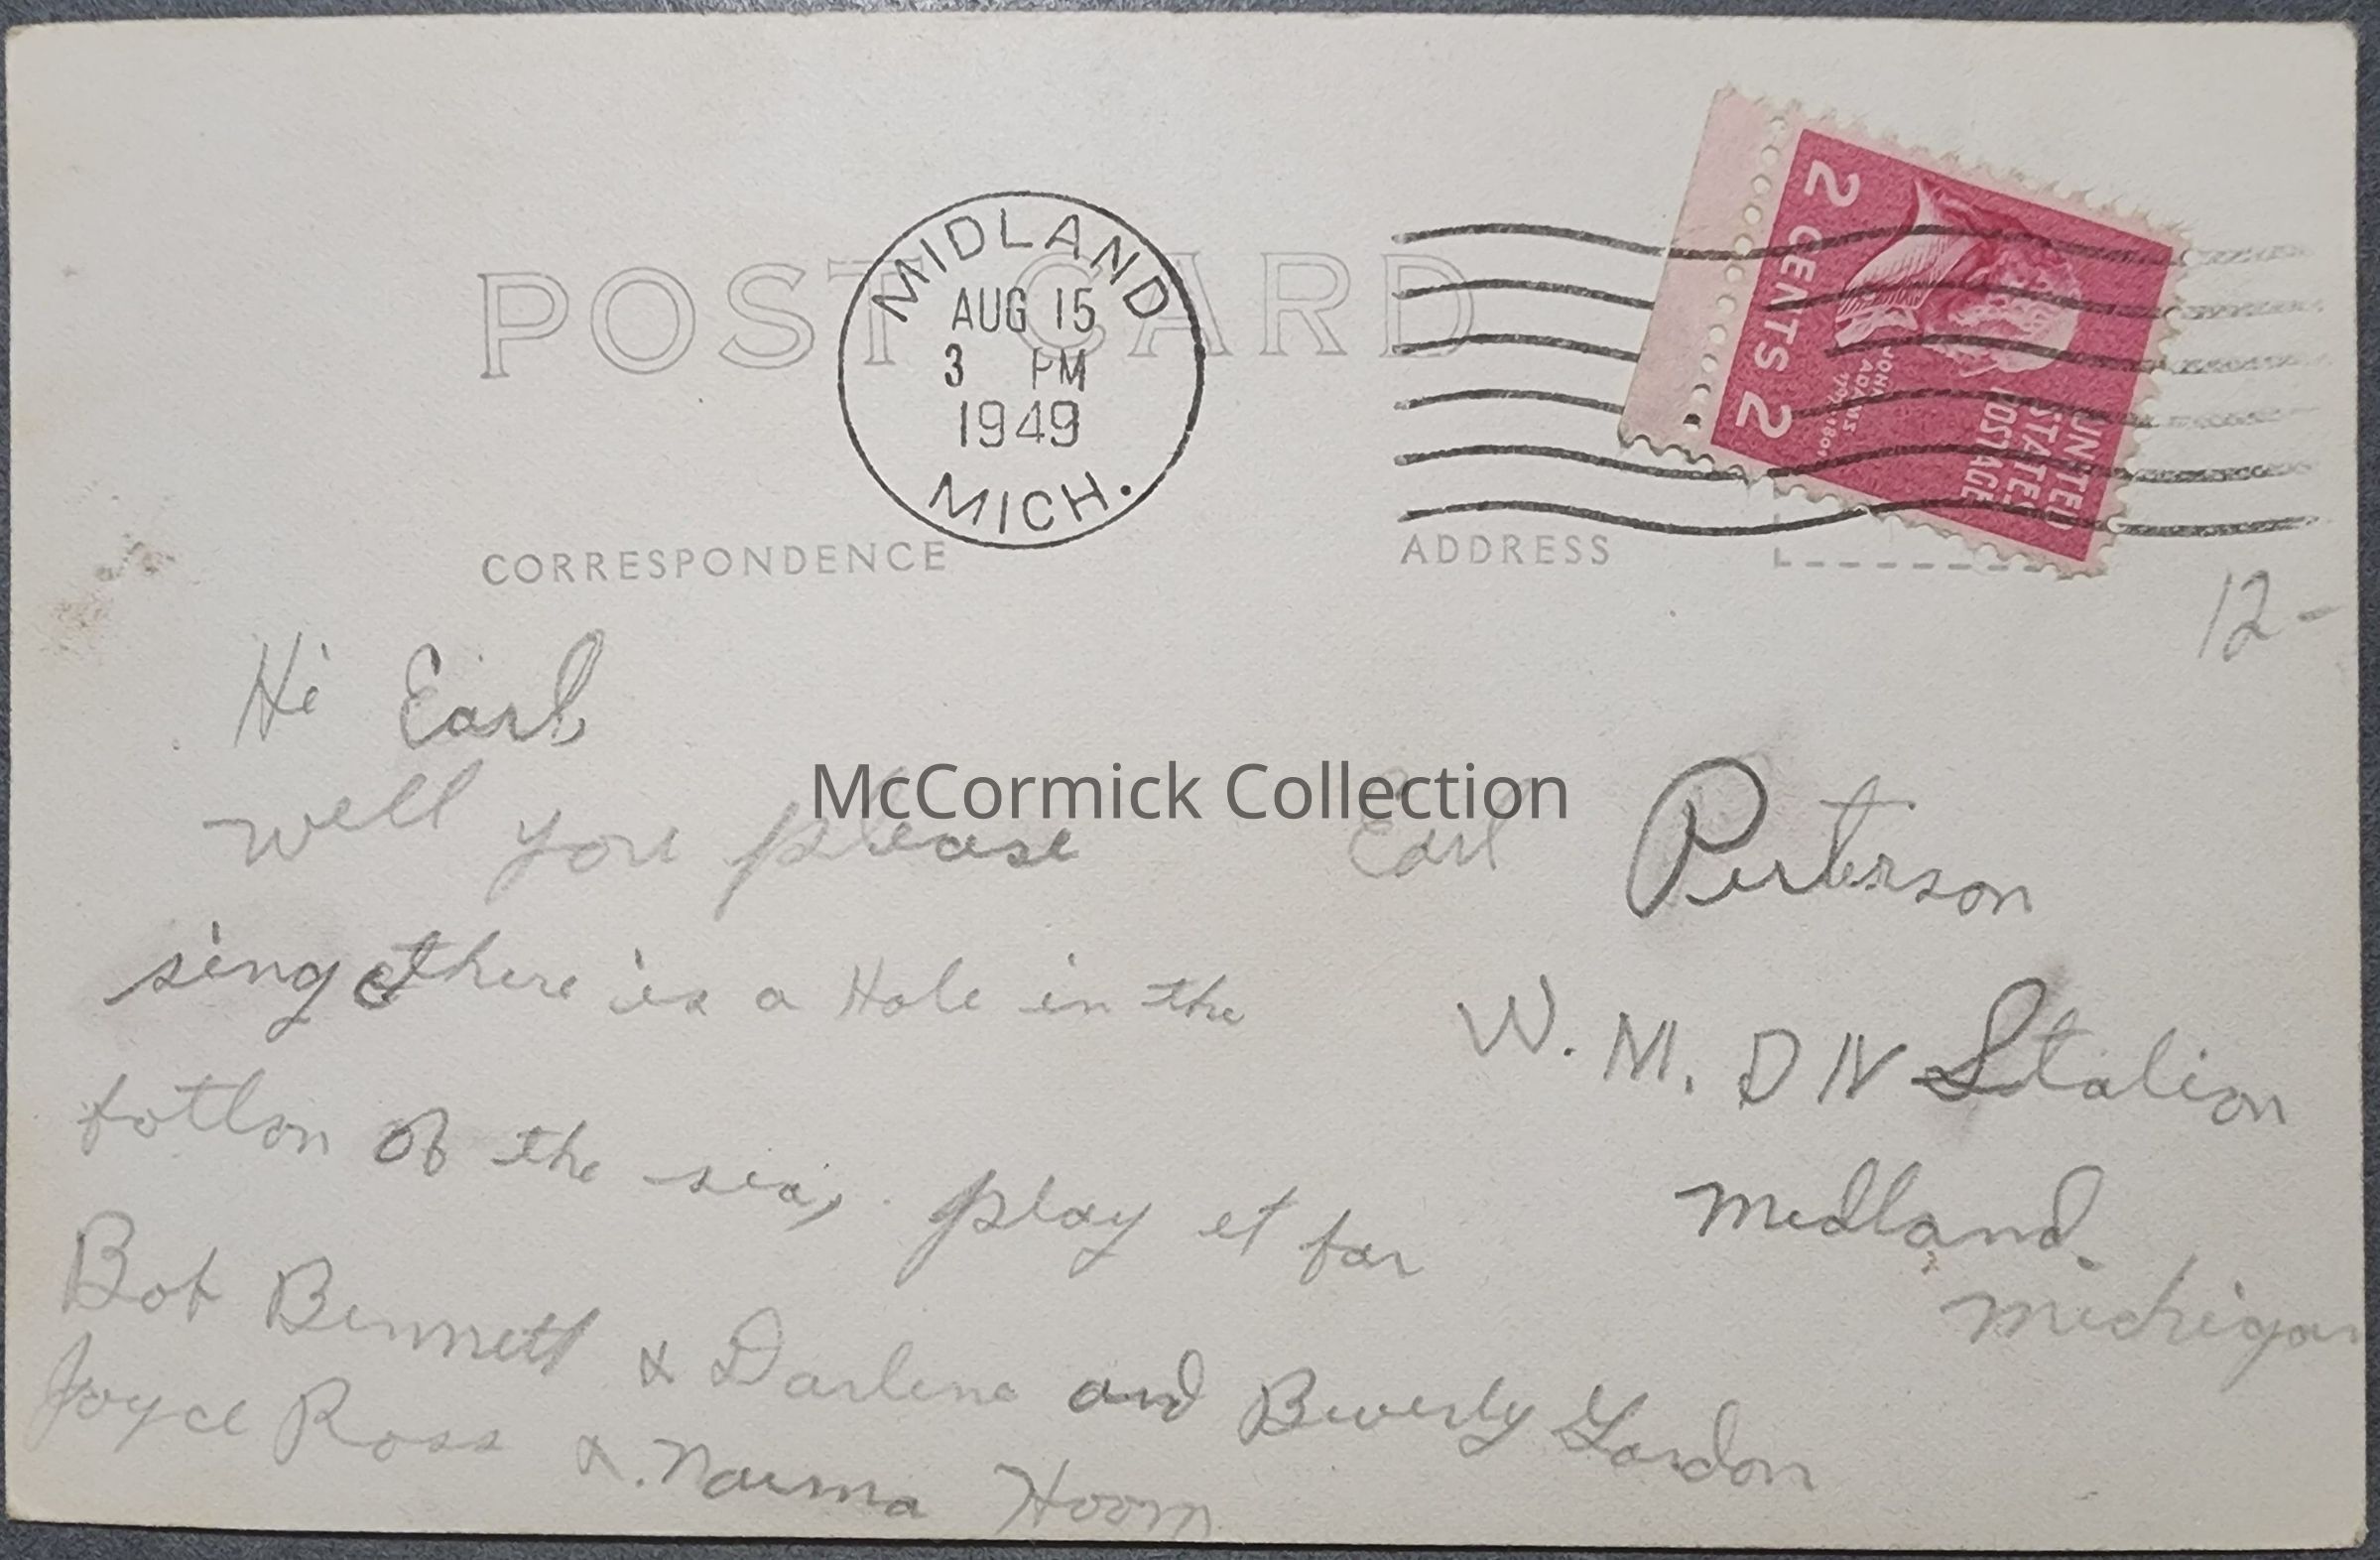 POST CARD
MIDLAND
AUG 15
3 PM
1949
MICH.
2 CENTS 2
JOHN ADAMS
UNITED
STATES
POSTAGE
CORRESPONDENCE
ADDRESS
12-
Hi Earl,
well you please
sing there is a Hole in the
botton of the sea, play it for
Bob Bennett & Darlene and Beverly Gordon
Joyce Ross &. Naurma Hoorn
Earl Perterson
W. M. D N Station
Midland.
Michigan
McCormick Collection